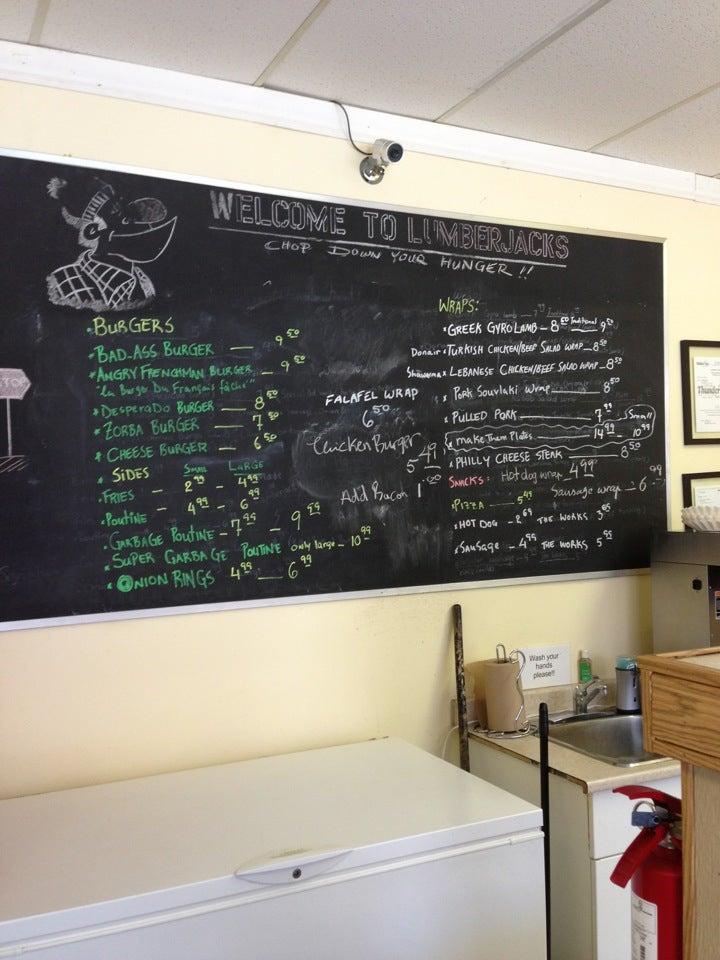 WELCOME TO LUMBERJACKS
CHOP DOWN YOUR HUNGER !!
BURGERS
BAD-ASS BURGER — 9 50
ANGRY FRENCHMAN BURGER — 9 50
"Un Burger Du Français fâché"
DESPERADO BURGER — 8 50
ZORBA BURGER — 7 50
CHEESE BURGER — 6 50
SIDES Small LARGE
FRIES – 2 99 – 4 99
POUTINE – 4 99 – 6 99
GARBAGE POUTINE – 7 99 – 9 99
SUPER GARBAGE POUTINE only large – 10 99
ONION RINGS 4 99 — 6 99
FALAFEL WRAP
6 50
Chicken Burger
5 49
Add Bacon 1 00
WRAPS:
GREEK GYRO LAMB – 8 50 Traditional 9 50
Donair TURKISH CHICKEN/BEEF SALAD WRAP – 8 50
Shawarma LEBANESE CHICKEN/BEEF SALAD WRAP – 8 50
PORK SOUVLAKI WRAP 8 50
PULLED PORK — 7 99
make Them Plates — 14 99 Small 10 99
PHILLY CHEESE STEAK — 8 50
SNACKS: Hot dog wrap – 4 99
Sausage wrap – 6 99
PIZZA — 5 49
HOT DOG – 2 69 THE WORKS 3 85
SAUSAGE – 4 99 THE WORKS 5 95
Wash your
hands
please!!